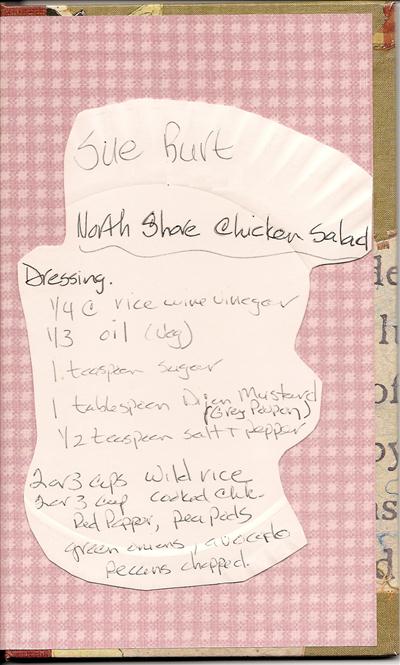 Sue Burt
North Shore Chicken Salad
Dressing.
1/4 c rice wine vinegar
1/3 oil (veg)
1 teaspoon sugar
1 tablespoon Dijon Mustard
(Grey Poupon)
1/2 teaspoon salt + pepper
2 or 3 cups wild rice
2 or 3 cup cooked Chk.
Red Pepper, pea pods
green onions, avocado
pecans chopped.